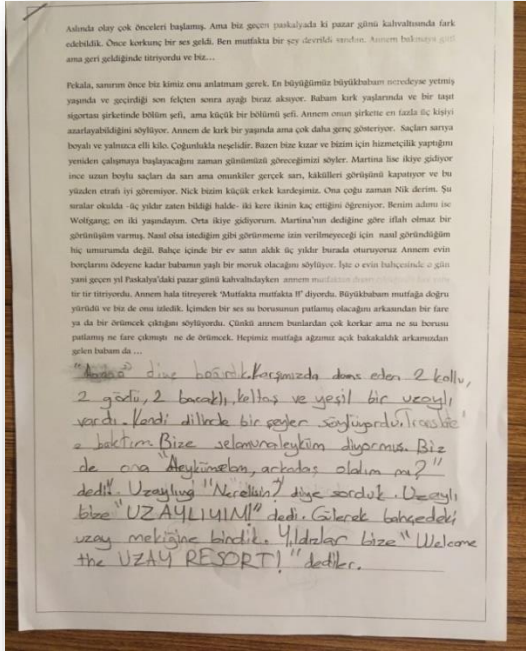 Aslında olay çok önceleri başlamış. Ama biz geçen paskalyada ki pazar günü kahvaltısında fark
edebildik. Önce korkunç bir ses geldi. Ben mutfakta bir şey devrildi sandım. Annem bakmaya gitti
ama geri geldiğinde titriyordu ve biz…
Pekala, sanırım önce biz kimiz onu anlatmam gerek. En büyüğümüz büyükbabam neredeyse yetmiş
yaşında ve geçirdiği son felçten sonra ayağı biraz aksıyor. Babam kırk yaşlarında ve bir taşıt
sigortası şirketinde bölüm şefi, ama küçük bir bölümü şefi. Annem onun şirkette en fazla üç kişiyi
azarlayabildiğini söylüyor. Annem de kırk bir yaşında ama çok daha genç gösteriyor. Saçları sarıya
boyalı ve yalnızca elli kilo. Çoğunlukla neşelidir. Bazen bize kızar ve bizim için hizmetçilik yaptığını
yeniden çalışmaya başlayacağını zaman günümüzü göreceğimizi söyler. Martina lise ikiye gidiyor
ince uzun boylu saçları da sarı ama onunkiler gerçek sarı, kâkülleri görüşünü kapatıyor ve bu
yüzden etrafı iyi göremiyor. Nick bizim küçük erkek kardeşimiz. Ona çoğu zaman Nik derim. Şu
sıralar okulda -üç yıldır zaten bildiği halde- iki kere ikinin kaç ettiğini öğreniyor. Benim adımı ise
Wolfgang; on iki yaşındayım. Orta ikiye gidiyorum. Martina'nın dediğine göre iflah olmaz bir
görünüşüm varmış. Nasıl olsa istediğim gibi görünmeme izin verilmeyeceği için nasıl göründüğüm
hiç umurumda değil. Bahçe içinde bir ev satın aldık üç yıldır burada oturuyoruz Annem evin
borçlarını ödeyene kadar babamın yaşlı bir moruk olacağını söylüyor. İşte o evin bahçesinde o gün
yani geçen yıl Paskalya'daki pazar günü kahvaltıdayken annem mutfaktan
tir tir titriyordu. Annem hala titreyerek 'Mutfakta mutfakta !!' diyordu. Büyükbabam mutfağa doğru
yürüdü ve biz de onu izledik. İçimden bir ses su borusunun patlamış olacağını arkasından bir fare
ya da bir örümcek çıktığını söylüyordu. Çünkü annem bunlardan çok korkar ama ne su borusu
patlamış ne fare çıkmıştı ne de örümcek. Hepimiz mutfağa ağzımız açık bakakaldık arkamızdan
gelen babam da …
diye bağırdık. Karşımızda dans eden 2 kollu,
2 gözlü, 2 bacaklı, keltoş ve yeşil bir uzaylı
vardı. Kendi dilinde bir şeyler söylüyordu.
baktım. Bize selamunaleyküm diyormuş. Biz
de ona "Aleykümselam, arkadaş olalım mı?"
dedik. Uzaylıya "Nerelisin? diye sorduk. Uzaylı
bize "UZAYLIYIM!" dedi. Gülerek bahçedeki
uzay mekiğine bindik. Yıldızlar bize "Welcome
the UZAY RESORT!" dediler.